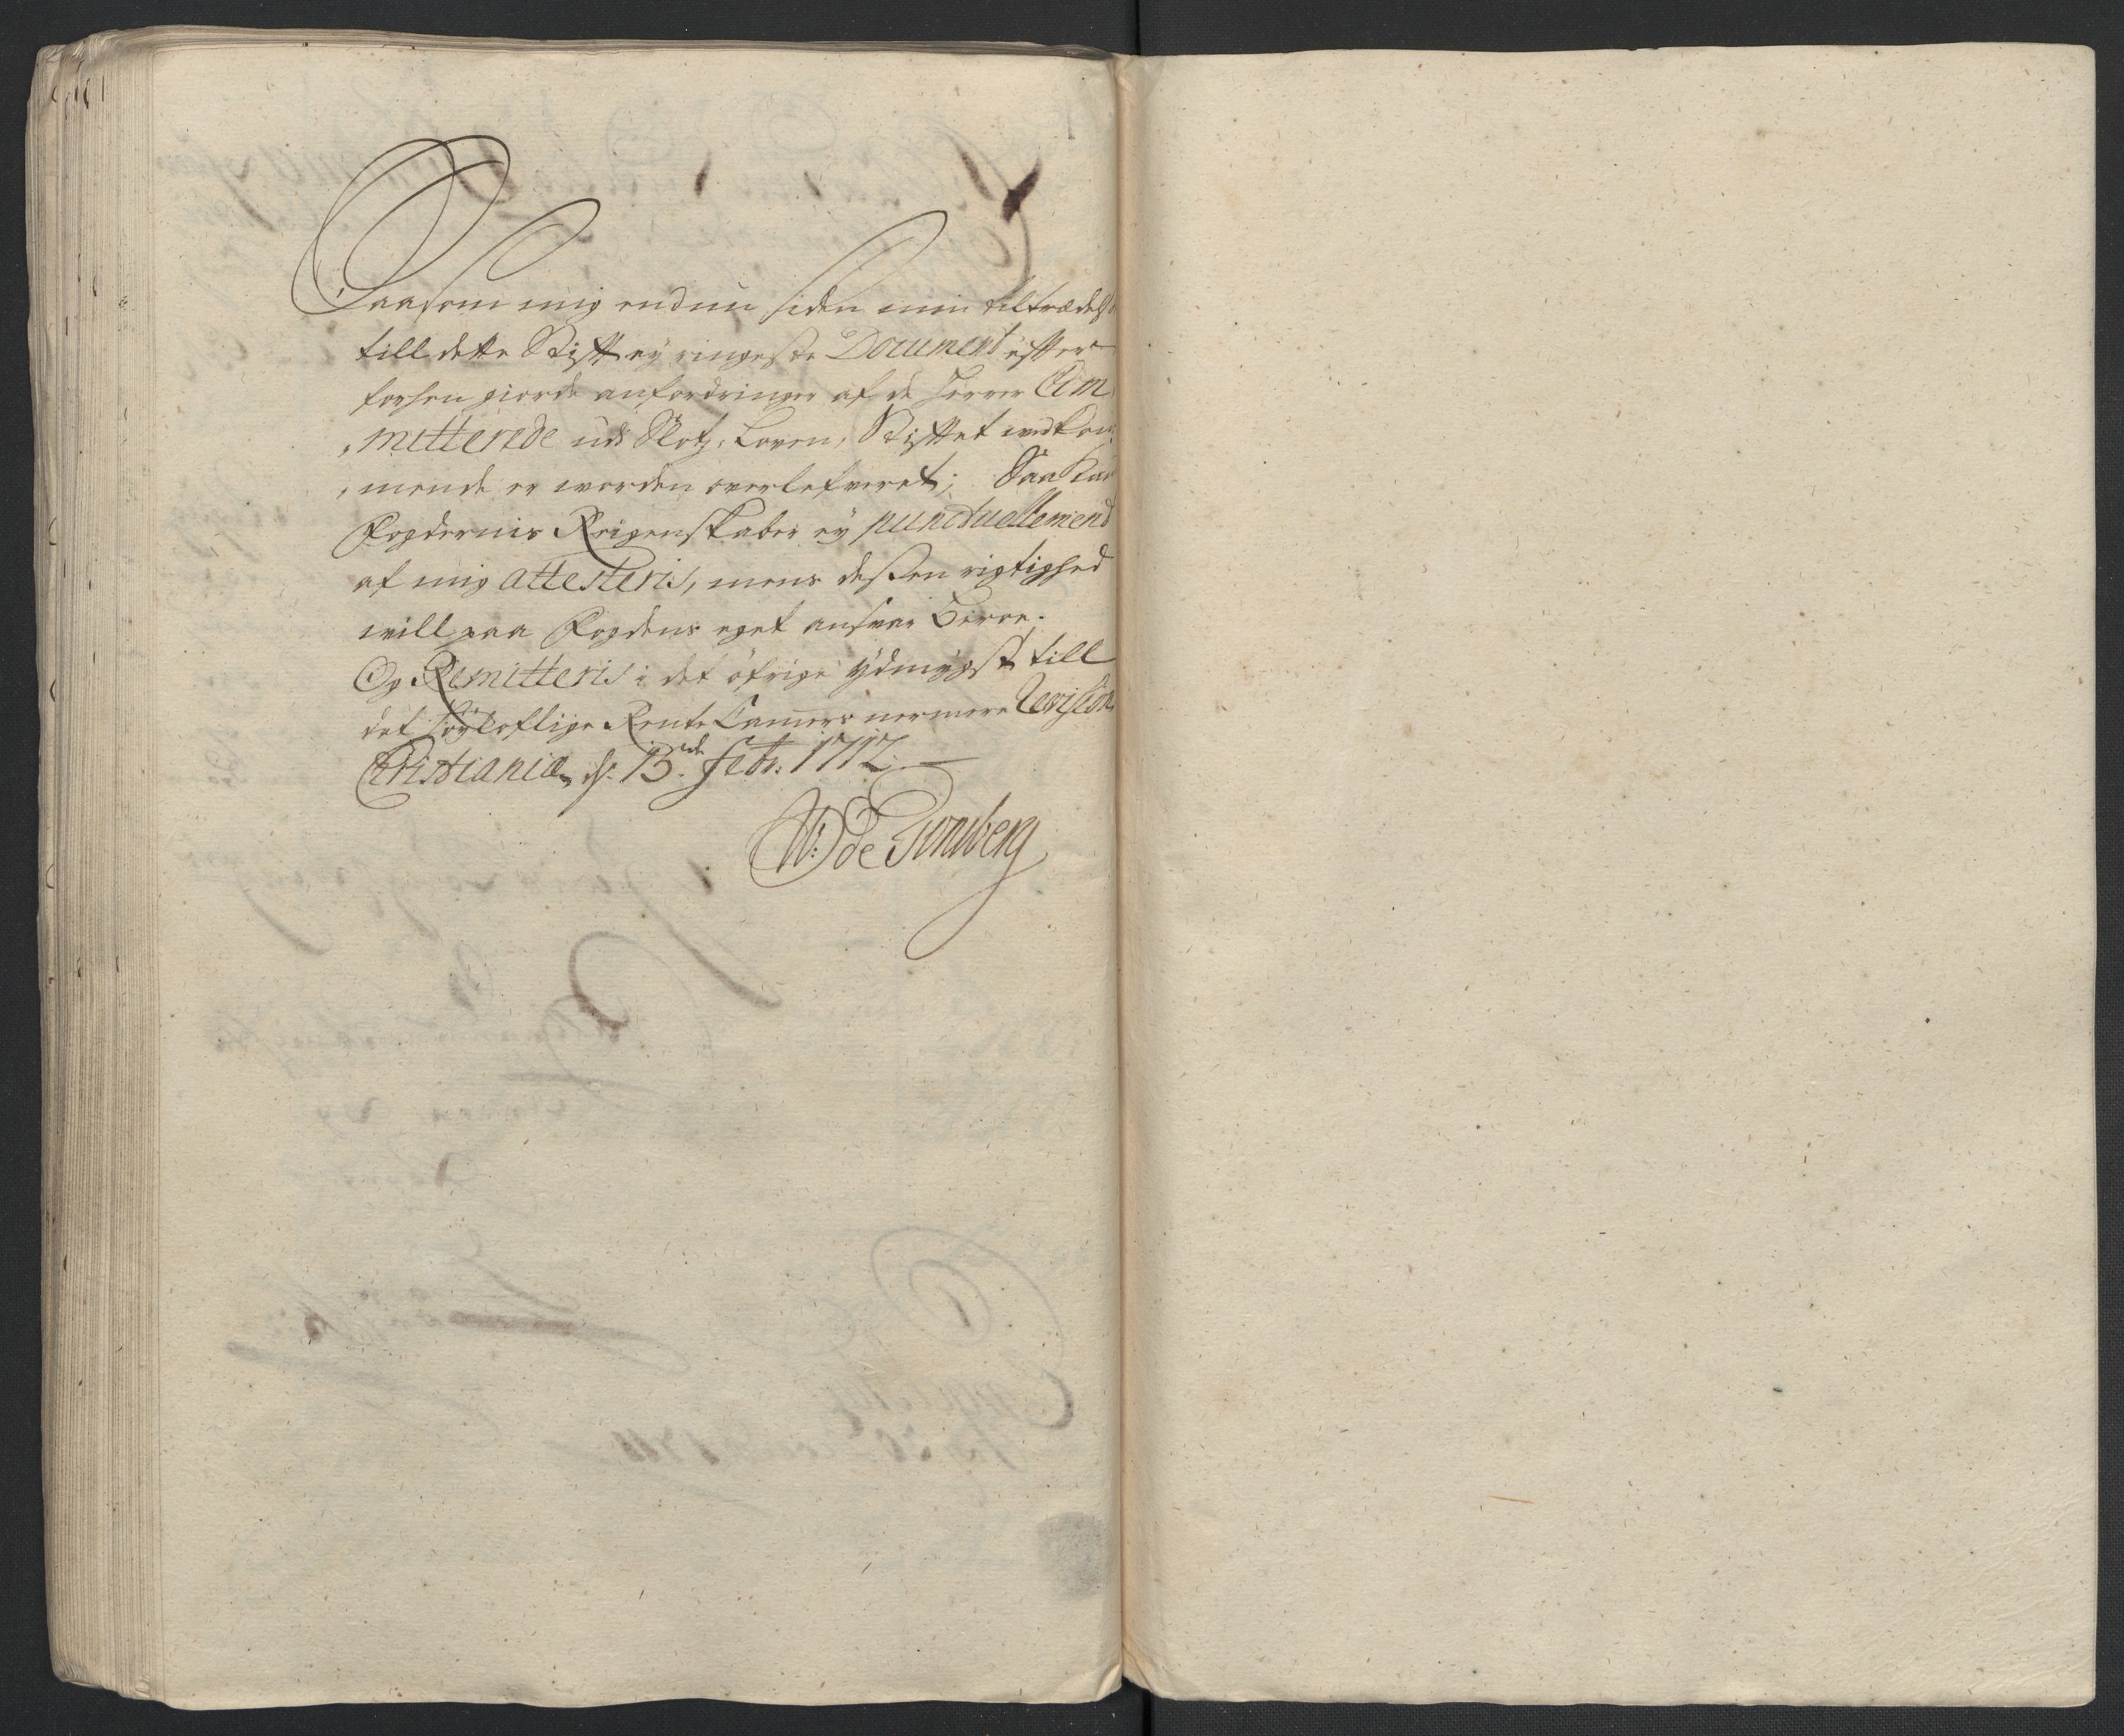 Saasom mig endnu siden min tiltrædelse
till dette Stift ey ringeste Document efter
forhen giorde anfordringer af de Herrer Com
mitterede udi Slotz-Loven, Stiftet vedkom
mende er worden overlefveret; Saa kand
Fogdernis Reigenskaber ey punctuellement
af mig attesteris, mens deßen rigtighed
will paa Fogdens eget ansvar beroe.
Og Remitteris i det öfrige ydmygst till
det höyloflige Rente Cammers nermere Revision
Christiania, d. 13de Febr: 1712.
W: de Tonsberg